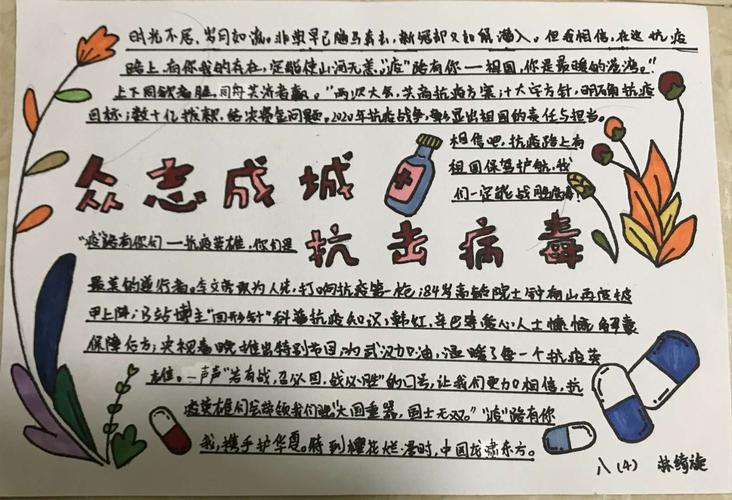 时光不居，岁月如流。非典早已随马离去，新冠却又如蛇潜入。但我相信，在这抗疫
路上，有你我的存在，定能使山河无恙。"疫"路有你——祖国，你是最暖的港湾。"
上下同欲者胜，同舟共济者赢。"两次大会，共商抗疫方案；十大字方针，明确抗疫
目标；数十亿拨款，给决资金问题。2020年抗疫战争，彰显出祖国的责任与担当。
相信吧，抗疫路上有
祖国保驾护航，我
们一定能战胜
众志成城
抗击病毒
"疫"路有你们——抗疫英雄，你们是
最美的逆行者。李文亮敢为人先，打响抗疫第一枪；84岁高龄院士钟南山再度披
甲上阵；B站博主"回形针"科普抗疫知识；韩红、辛巴等爱心人士慷慨解囊
保障后方；央视春晚推出特别节目，为武汉加油，温暖了每一个抗疫英
雄。一声声"若有战，召必回，战必胜"的口号，让我们更加相信，抗
疫英雄们会带领我们 "大国重器，国士无双。""疫"路有你
我，携手护华夏。待到樱花烂漫时，中国龙啸东方。
八(4) 林绮旋